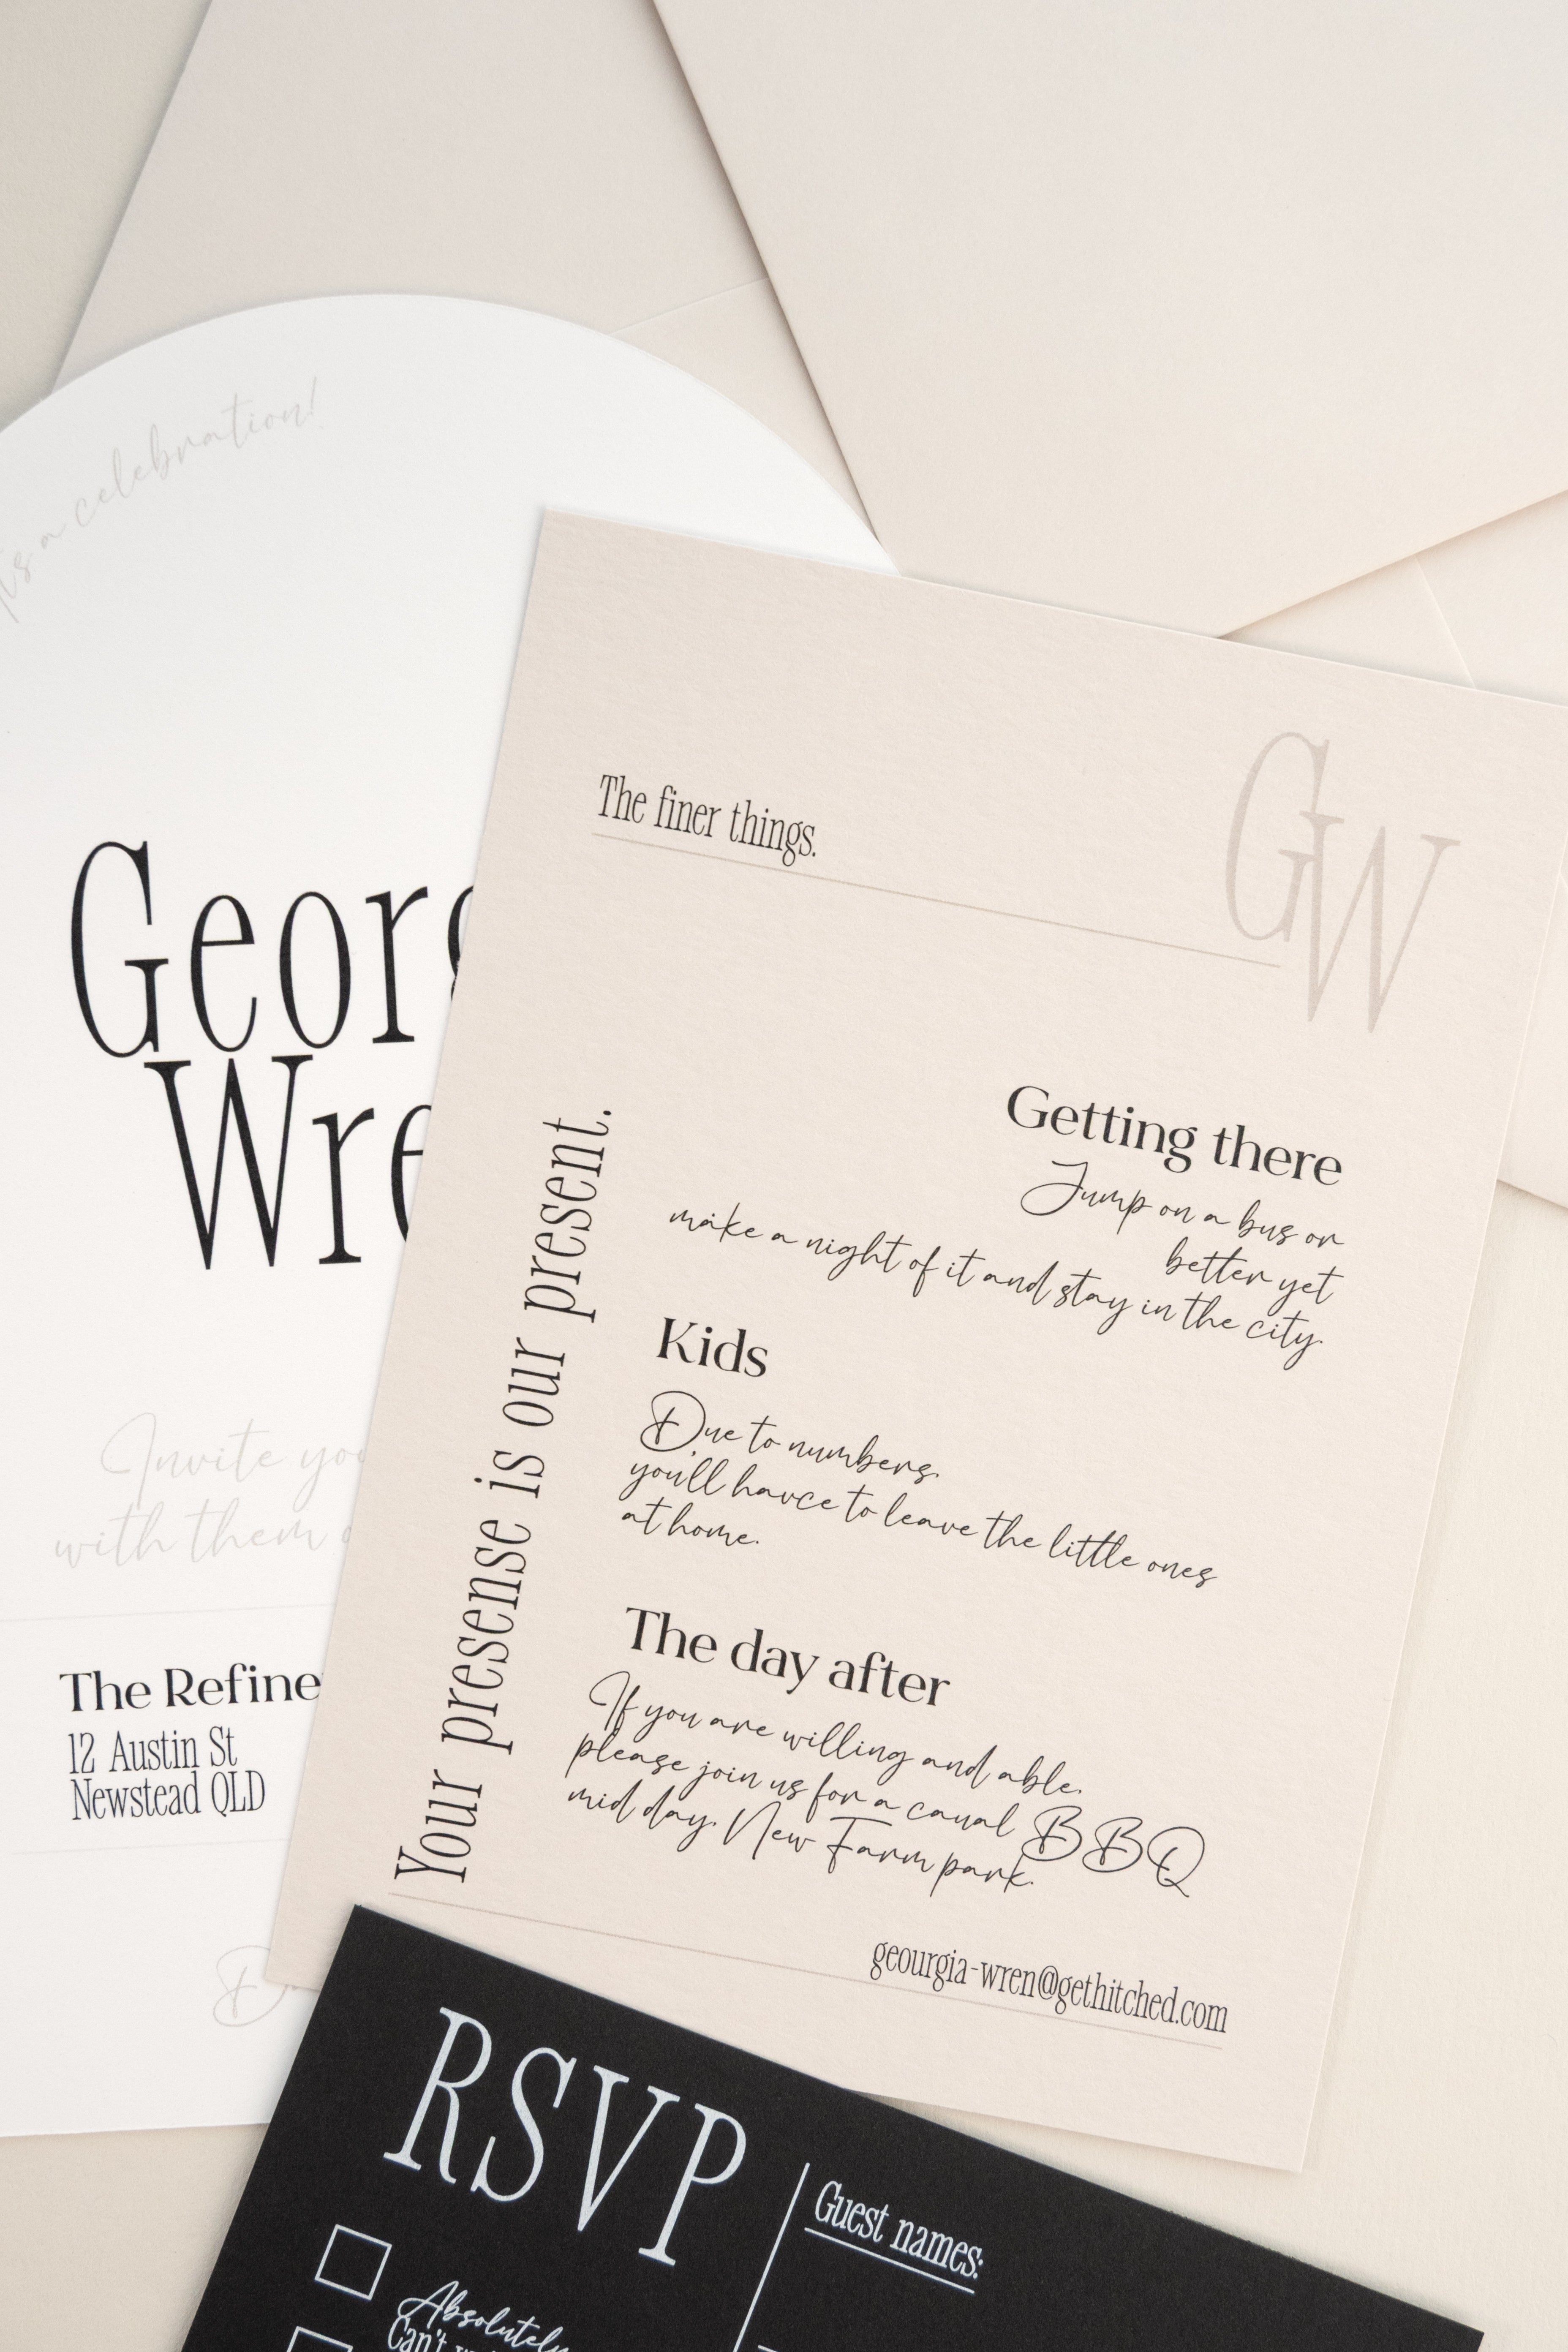 It's a celebration!
Georg
Wre
Invite you
with them
The Refine
12 Austin St
Newstead QLD
The finer things.
GW
Your presense is our present.
Getting there
Jump on a bus or
better yet
make a night of it and stay in the city.
Kids
Due to numbers.
you'll havce to leave the little ones
at home.
The day after
If you are willing and able.
please join us for a caual BBQ
mid day. New Farm park.
geourgia-wren@gethitched.com
RSVP
Guest names:
Absolutely
Can't